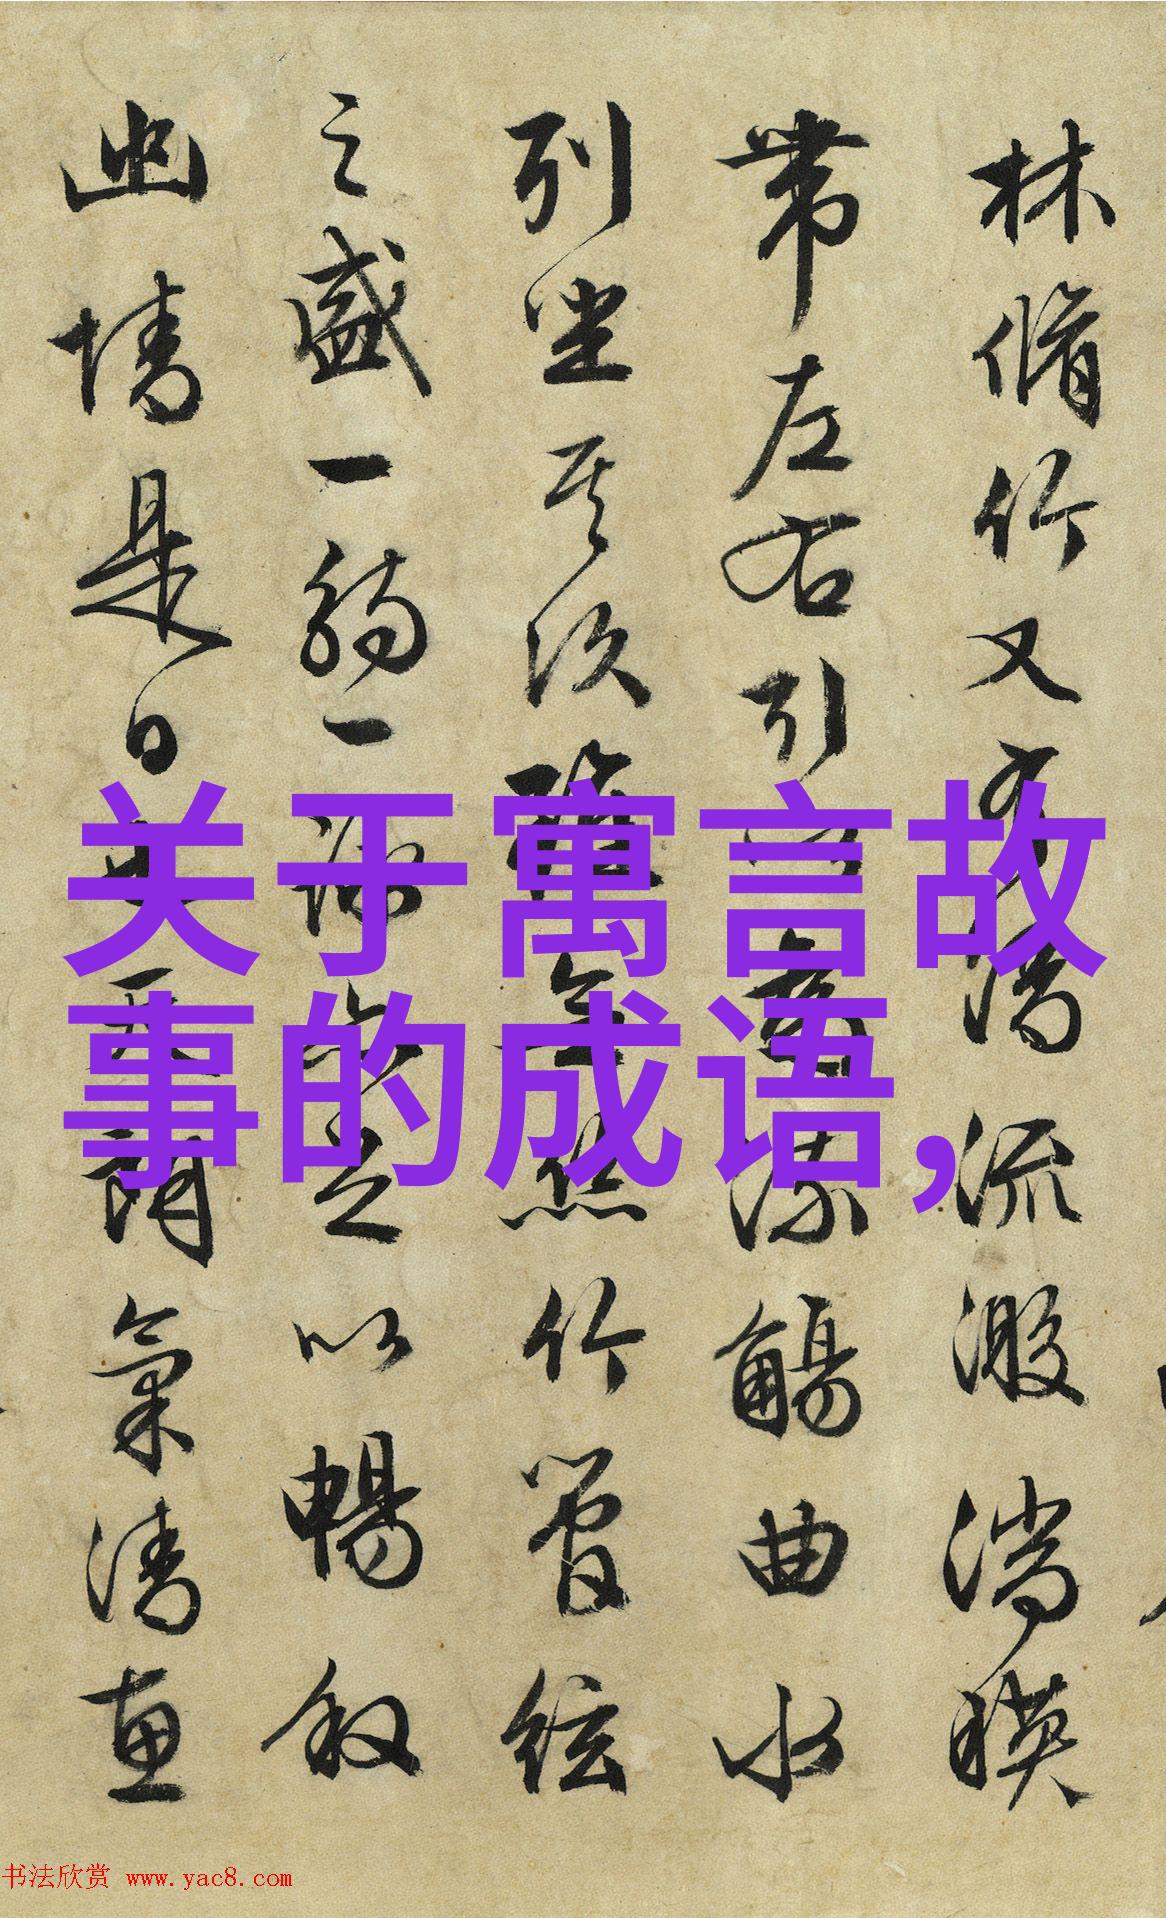 林脩竹又有清流激湍暎
帶左右引以為流觴曲水
列坐其次雖無絲竹管絃
之盛一觴一詠亦足以暢叙
幽情是日也天朗氣清惠
关于寓言故
事的成语,
书法欣赏 www.yac8.com